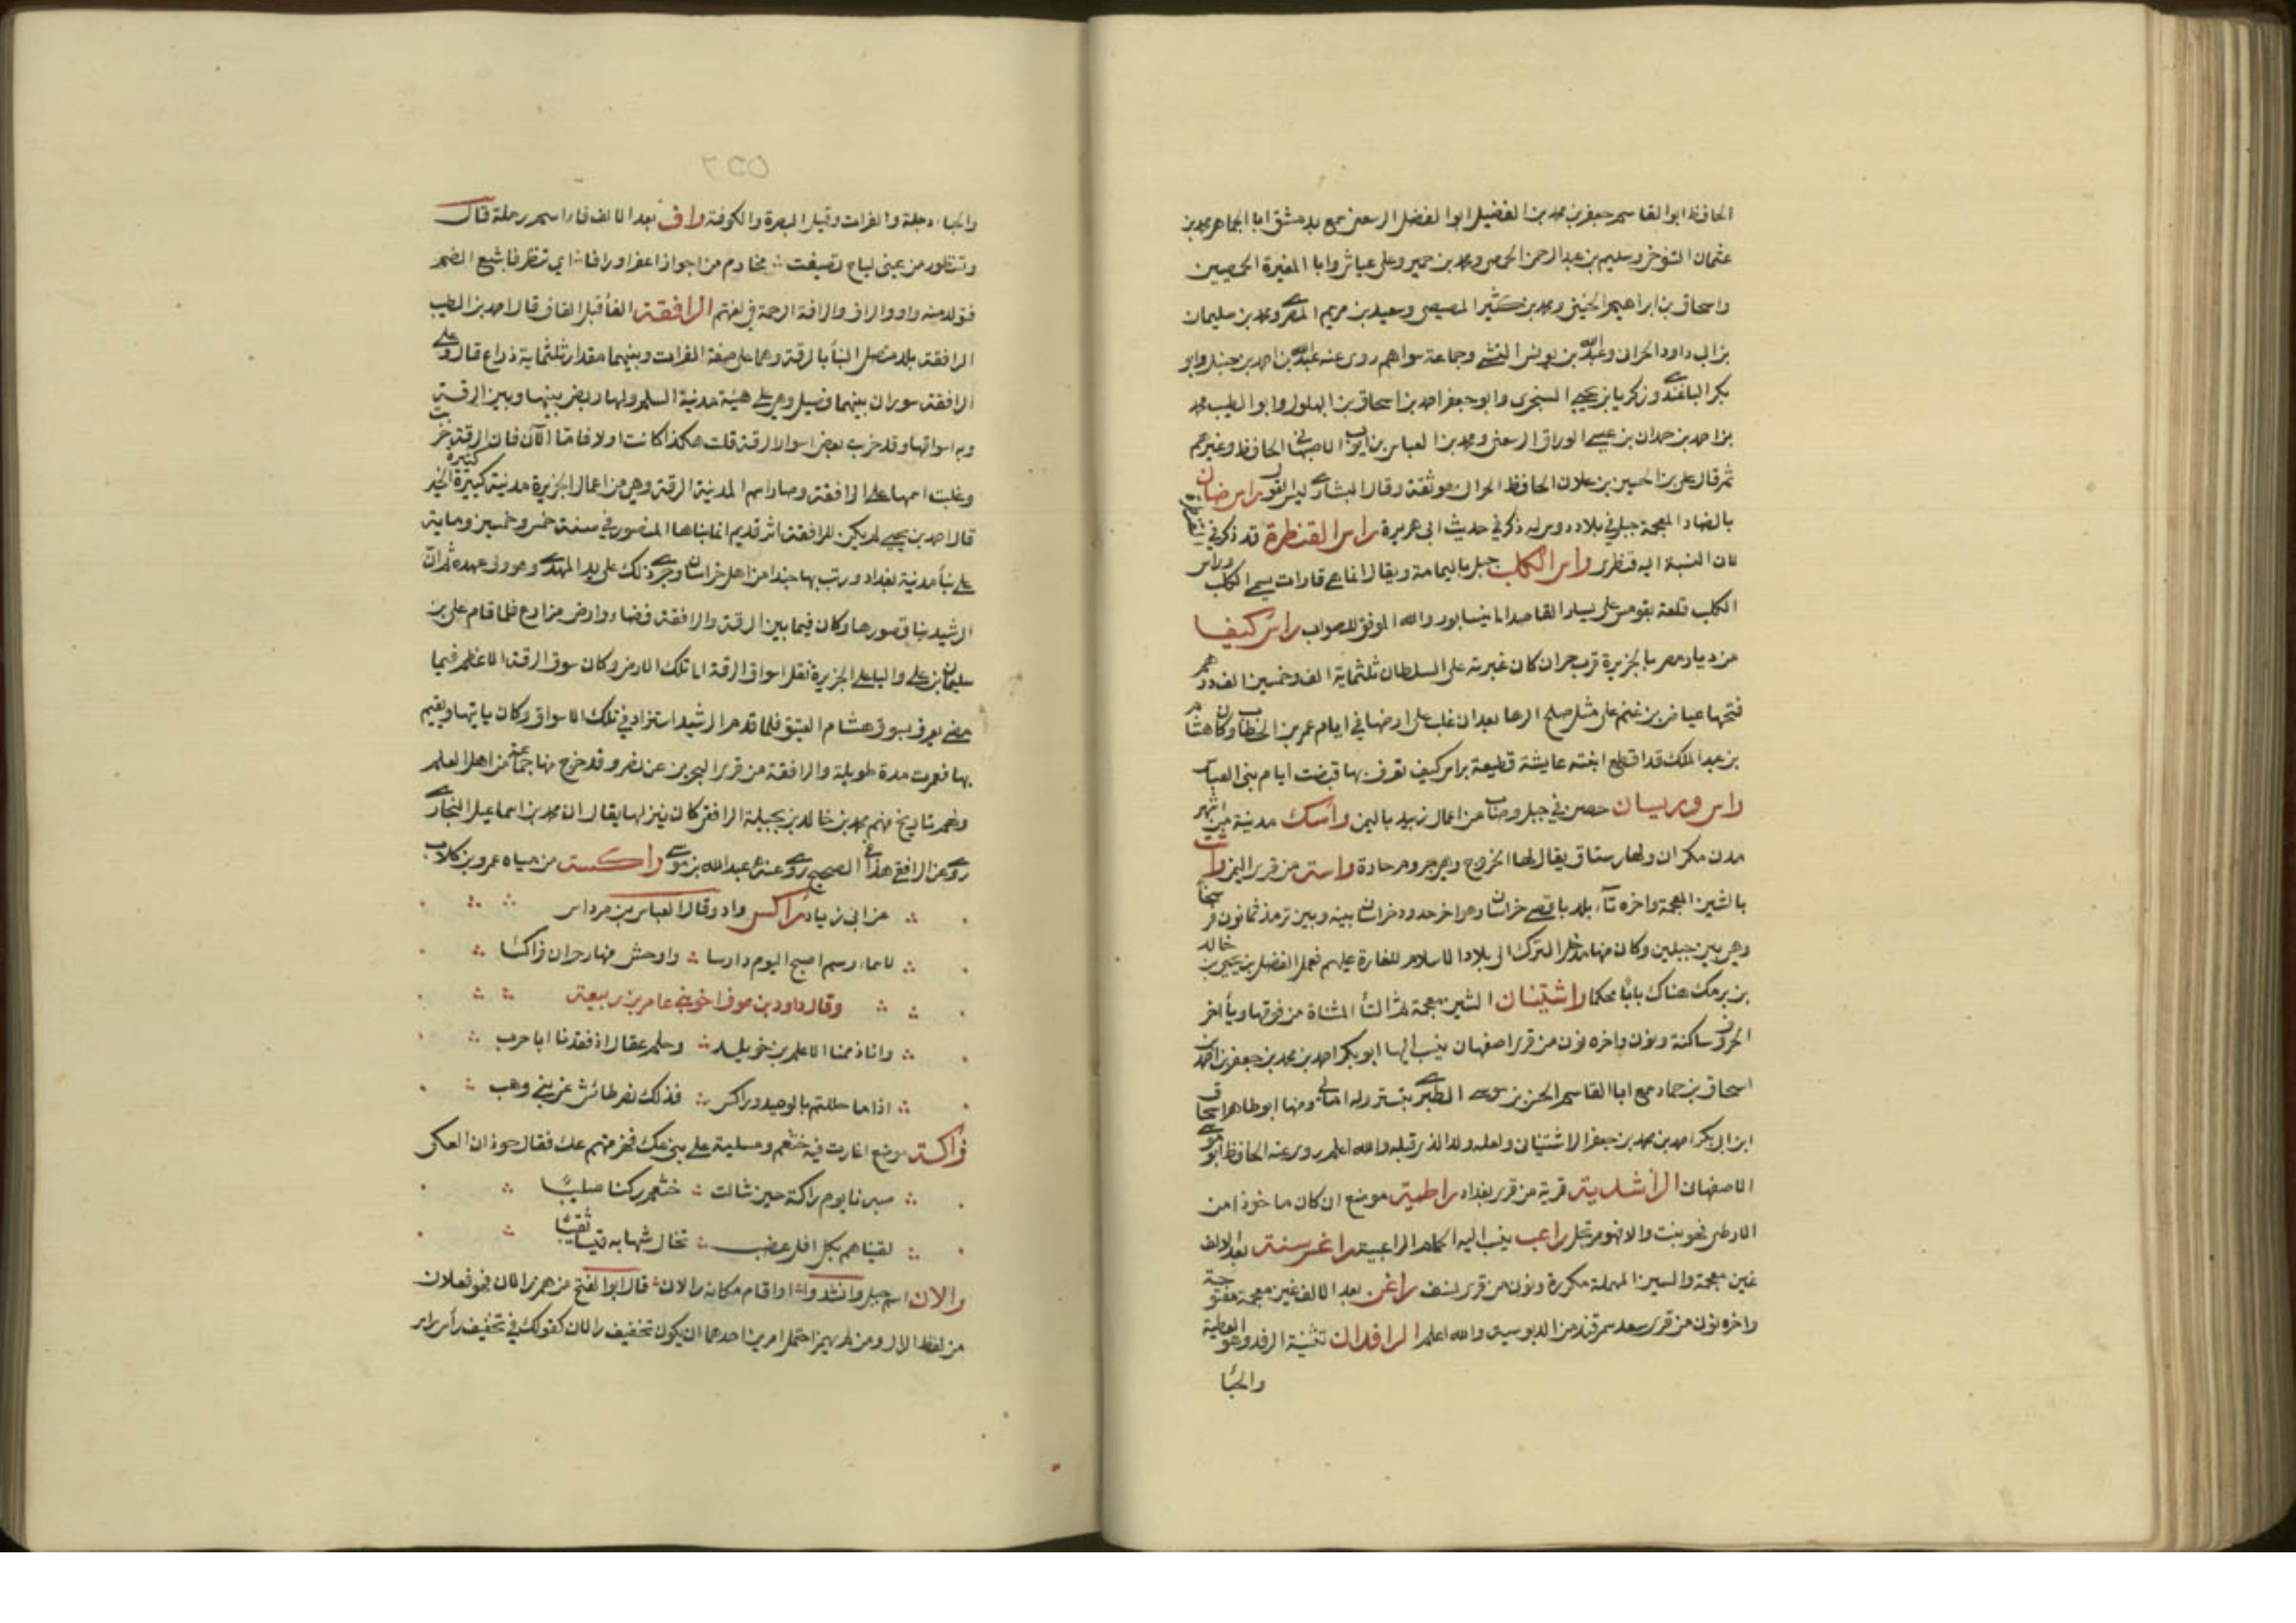 الحافظ ابو القاسم جعفر بن محمد بن الفضيل ابو الفضل الرسعني سمع بدمشق ابا الجماهر محمد بن
عثمان التنوخي وسليم بن عبد الرحمن الحمصي ومحمد بن حمير وعلي عياش وابا المغيرة الحمصيين
واسحاق بن ابراهيم الحنيني ومحمد بن كثير المصيصي وسعيد بن مريم المصري ومحمد بن سليمان
بن ابي داود الحراني وعبد الله بن يوسف التنيسي وجماعة سواهم روى عنه عبد الله بن احمد بن حنبل وابو
بكر الباغندي وزكريا بن يحيى السنجري وابو جعفر احمد بن اسحاق بن البهلول وابو الطيب محمد
بن احمد بن حمدان بن عيسى الوراق الرسعني ومحمد بن العباس بن ايوب الاصبهاني الحافظ وغيرهم
ثم قال علي بن الحسين بن علان الحافظ الحراني هو ثقة وقال البشاري ليس بالقوي راس ضان
بالضاد المعجمة جبل في بلاد دوس له ذكر في حديث ابي هريرة راس القنطرة قد ذكر في
لان النسبة اليه قنطري راس الكلب جبل باليمامة ويقال انما هي قارات يسمى الكلب وراس
الكلب قلعة بقومس على يسار القاصد الى نيسابور والله الموفق للصواب راس كيفا
من ديار مضر بالجزيرة قرب حران كان غبرته على السلطان ثلثماية الف وخمسين الف درهم
فتحها عياض بن غنم على مثل صلح الرها بعد ان غلب على ارضها في ايام عمر بن الخطاب وكان هشام
بن عبد الملك قد اقطع ابنته عايشة قطيعة براس كيفا تعرف بها قبضت ايام بني العباس
راس وريسان حصن في جبل وصاب من اعمال زبيد باليمن راسك مدينة من اشهر
مدن مكران ولها رستاق يقال لها الخروج وهي جروم حارة راسة من قرى اليمن راشت
بالشين المعجمة واخره تاء بلد باقصى خراسان وهو اخر حدود خراسان بينه وبين ترمذ ثمانون فرسخا
وهي بين جبلين وكان منها مدخل الترك الى بلاد الاسلام للغارة عليهم فعمل الفضل بن يحيى بن خالد
بن برمك هناك بابا محكما راشتينان الشين معجمة ثم التاء المثناة من فوقها وياء اخر
الحروف ساكنة ونون واخره نون من قرى اصفهان ينسب اليها ابو بكر احمد بن محمد بن جعفر بن احمد بن
اسحاق بن حماد سمع ابا القاسم الحسن بن موسى الطبري بتستر وله امالي ومنها ابو طاهر اسحاق
ابن ابي بكر احمد بن محمد بن جعفر الراشتيناني ولعله ولد الذي قبله والله اعلم روى عنه الحافظ ابو موسى
الاصفهاني الراشدية قرية من قرى بغداد راطية موضع ان كان ماخوذا من
الارطى نحو بنت والا فهو مرتجل راعب ينسب اليه الحمام الراعبية راغسرسنة بعد الالف
غين معجمة والسين المهملة مكررة ونون من قرى نسف راغن بعد الالف غين معجمة مفتوحة
واخره نون من قرى سعد سمرقند من الدبوسية والله اعلم الرافدان تثنية الرفد وهو العطية
والحبا
٥٥٢
والحباء دجلة والفرات وقيل البصرة والكوفة راف بعد الالف فاء اسم رحلة قال
وتنظور من عيني لياح تصيفت مخارم من اجواز اعفر او رافا اي تنظر فاشبع الضمة
فتولد منه واو والراف والرافة الرحمة في لغتهم الرافقة الفاء قبل القاف قال احمد بن الطيب
الرافقة بلد متصل البناء بالرقة وهما على ضفة الفرات وبينهما مقدار ثلثماية ذراع قال وعلى
الرافقة سوران بينهما فصيل وهي على هيئة مدينة السلم ولها ربض بينها وبين الرقة
وبه اسواقها وقد خرب بعض اسوار الرقة قلت هكذا كانت اولا فاما الان فان الرقة خربت
وغلب اسمها على الرافقة وصار اسم المدينة الرقة وهي من اعمال الجزيرة مدينة كبيرة كثيرة الخير
قال احمد بن يحيى لم يكن للرافقة اثر قديم انما بناها المنصور في سنة خمس وخمسين وماية
على بناء مدينة بغداد ورتب بها جندا من اهل خراسان وجرى ذلك على يد المهدي وهو ولي عهده ثم ان
الرشيد بنا قصورها وكان فيما بين الرقة والرافقة فضاء وارض مزارع فلما قام علي بن
سليمان بن علي واليا على الجزيرة نقل اسواق الرقة الى تلك الارض وكان سوق الرقة الاعظم فيما
مضى يعرف بسوق هشام العتيق فلما قدم الرشيد استزاد في تلك الاسواق وكان ياتيها ويقيم
بها فعمرت مدة طويلة والرافقة من قرى البحرين عن نصر وقد خرج منها جماعة من اهل العلم
ولهم تاريخ منهم محمد بن خالد بن بجيلة الرافقي كان ينزلها يقال ان محمد بن اسماعيل البخاري
روى عن الرافقي هذا في الصحيح روى عنه عبد الله بن موسى راكسة من مياه عمرو بن كلاب
عن ابي زياد راكس واد وقال العباس بن مرداس
لاسماء رسم اصبح اليوم دارسا واوحش منها رحران فراكسا
وقال داود بن عوف اخو بني عامر بن ربيعة
وانا ذممنا الاعلم بن خويلد وحلم عقال اذ فقدنا ابا حرب
اذا ما حللتم بالوحيد وراكس فذلك نصر طائش عن بني وهب
راكة موضع اغارت فيه خثعم ومسلية على بني عك فجزمنهم عك فقال حوذان العكي
صبرنا يوم راكة حين شالت خثعم ركنا صليبا
لقيناهم بكل افل عضب تخال شهابه قبسا ثقيبا
رالان اسم جبل وانشدوا او اقام مكانه رالان قال ابو الفتح من همز رالان فهو فعلان
من لفظ الرال ومن لم يهمز احتمل امرين احدهما ان يكون تخفيف رالان كقولك في تخفيف راس راس